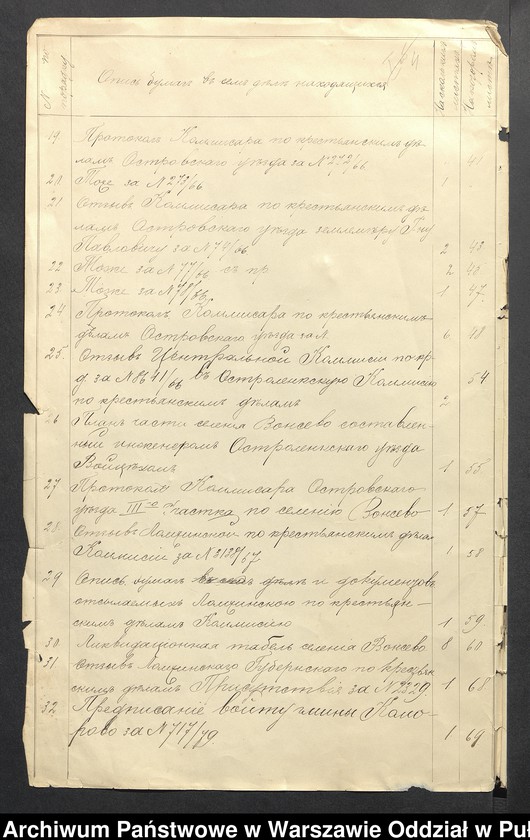 № по порядку
Опись бумагъ въ семъ дѣлѣ находящихся
На сколькихъ листахъ
На которомъ листѣ
19 Протоколъ Коммисара по крестьянскимъ дѣ-
ламъ Островскаго уѣзда за № 272/66 41
20 Тоже за № 273/66 1
21 Отзывъ Коммисара по крестьянскимъ дѣ-
ламъ Островскаго уѣзда землемѣру Гну
Павловичу за № 74/66 2 43
22 Тоже за № 77/66 съ пр 2
23 Тоже за № 78/66 1 47
24 Протоколъ Коммисара по крестьянскимъ
дѣламъ Островскаго уѣзда за № 6 48
25. Отзывъ Центральной Коммисіи по кр.
д за № 8641/66 въ Остроленскую Коммисію 54
по крестьянскимъ дѣламъ 2
26 Планъ части селенія Вонсево составлен-
ный инженеромъ Остроленскаго уѣзда
Войцѣхомъ 1 55
27 Протоколъ Коммисара Островскаго
уѣзда III-го участка по селенію Вонсево 1 57
28 Отзывъ Ломжинской по крестьянскимъ дѣла
Коммисіи за № 2128/67 1 58
29 Опись бумагъ дѣлъ и документовъ
отсылаемыхъ Ломжинскою по крестьян-
скимъ дѣламъ Коммисіею 1 59
30 Ликвидаціонная табель селенія Вонсево 8 60
31 Отзывъ Ломжинскаго Губернскаго по крестьян
скимъ дѣламъ Присутствія за № 2329 1 68
32. Предписаніе войту гмины Комо-
рово за № 717/79. 1 69
Archiwum Państwowe w Warszawie Oddział w Pu